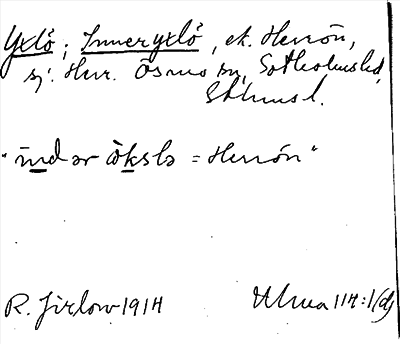 Yxlö; Inneryxlö, ek. Herrön,
sj. Herr. Ösmo sn, Sotholms hd,
Sthms l.
"īnd ər ö̀kslə = Herrön"
R. Jirlow 1914
Uma 114:1(d)